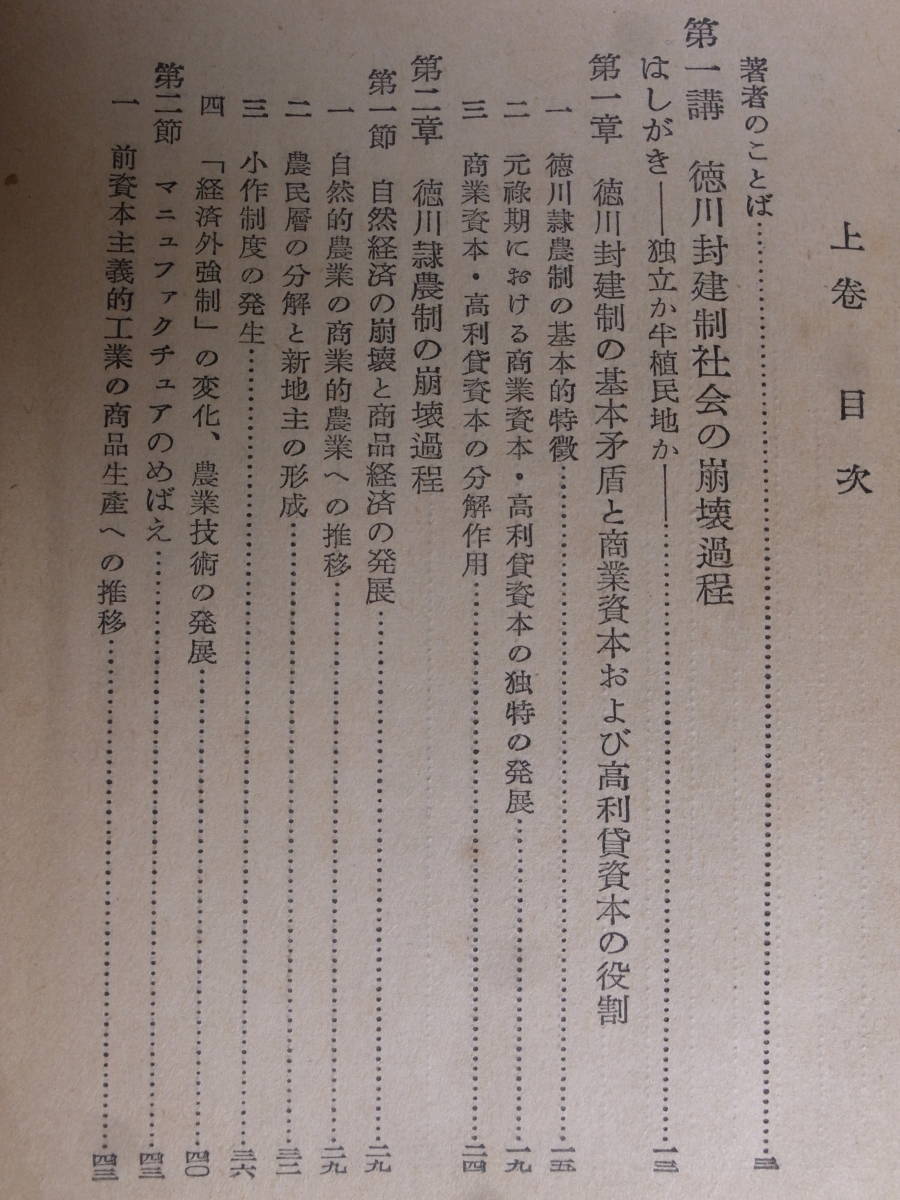 上巻　目次
著者のことば……三
第一講　徳川封建制社会の崩壊過程
はしがき――独立か半植民地か――……一三
第一章　徳川封建制の基本矛盾と商業資本および高利貸資本の役割
一　徳川隷農制の基本的特徴……一五
二　元禄期における商業資本・高利貸資本の独特の発展……一九
三　商業資本・高利貸資本の分解作用……二四
第二章　徳川隷農制の崩壊過程
第一節　自然経済の崩壊と商品経済の発展……二九
一　自然的農業の商業的農業への推移……二九
二　農民層の分解と新地主の形成……三二
三　小作制度の発生……三六
四　「経済外強制」の変化、農業技術の発展……四〇
第二節　マニュファクチュアのめばえ……四三
一　前資本主義的工業の商品生産への推移……四三